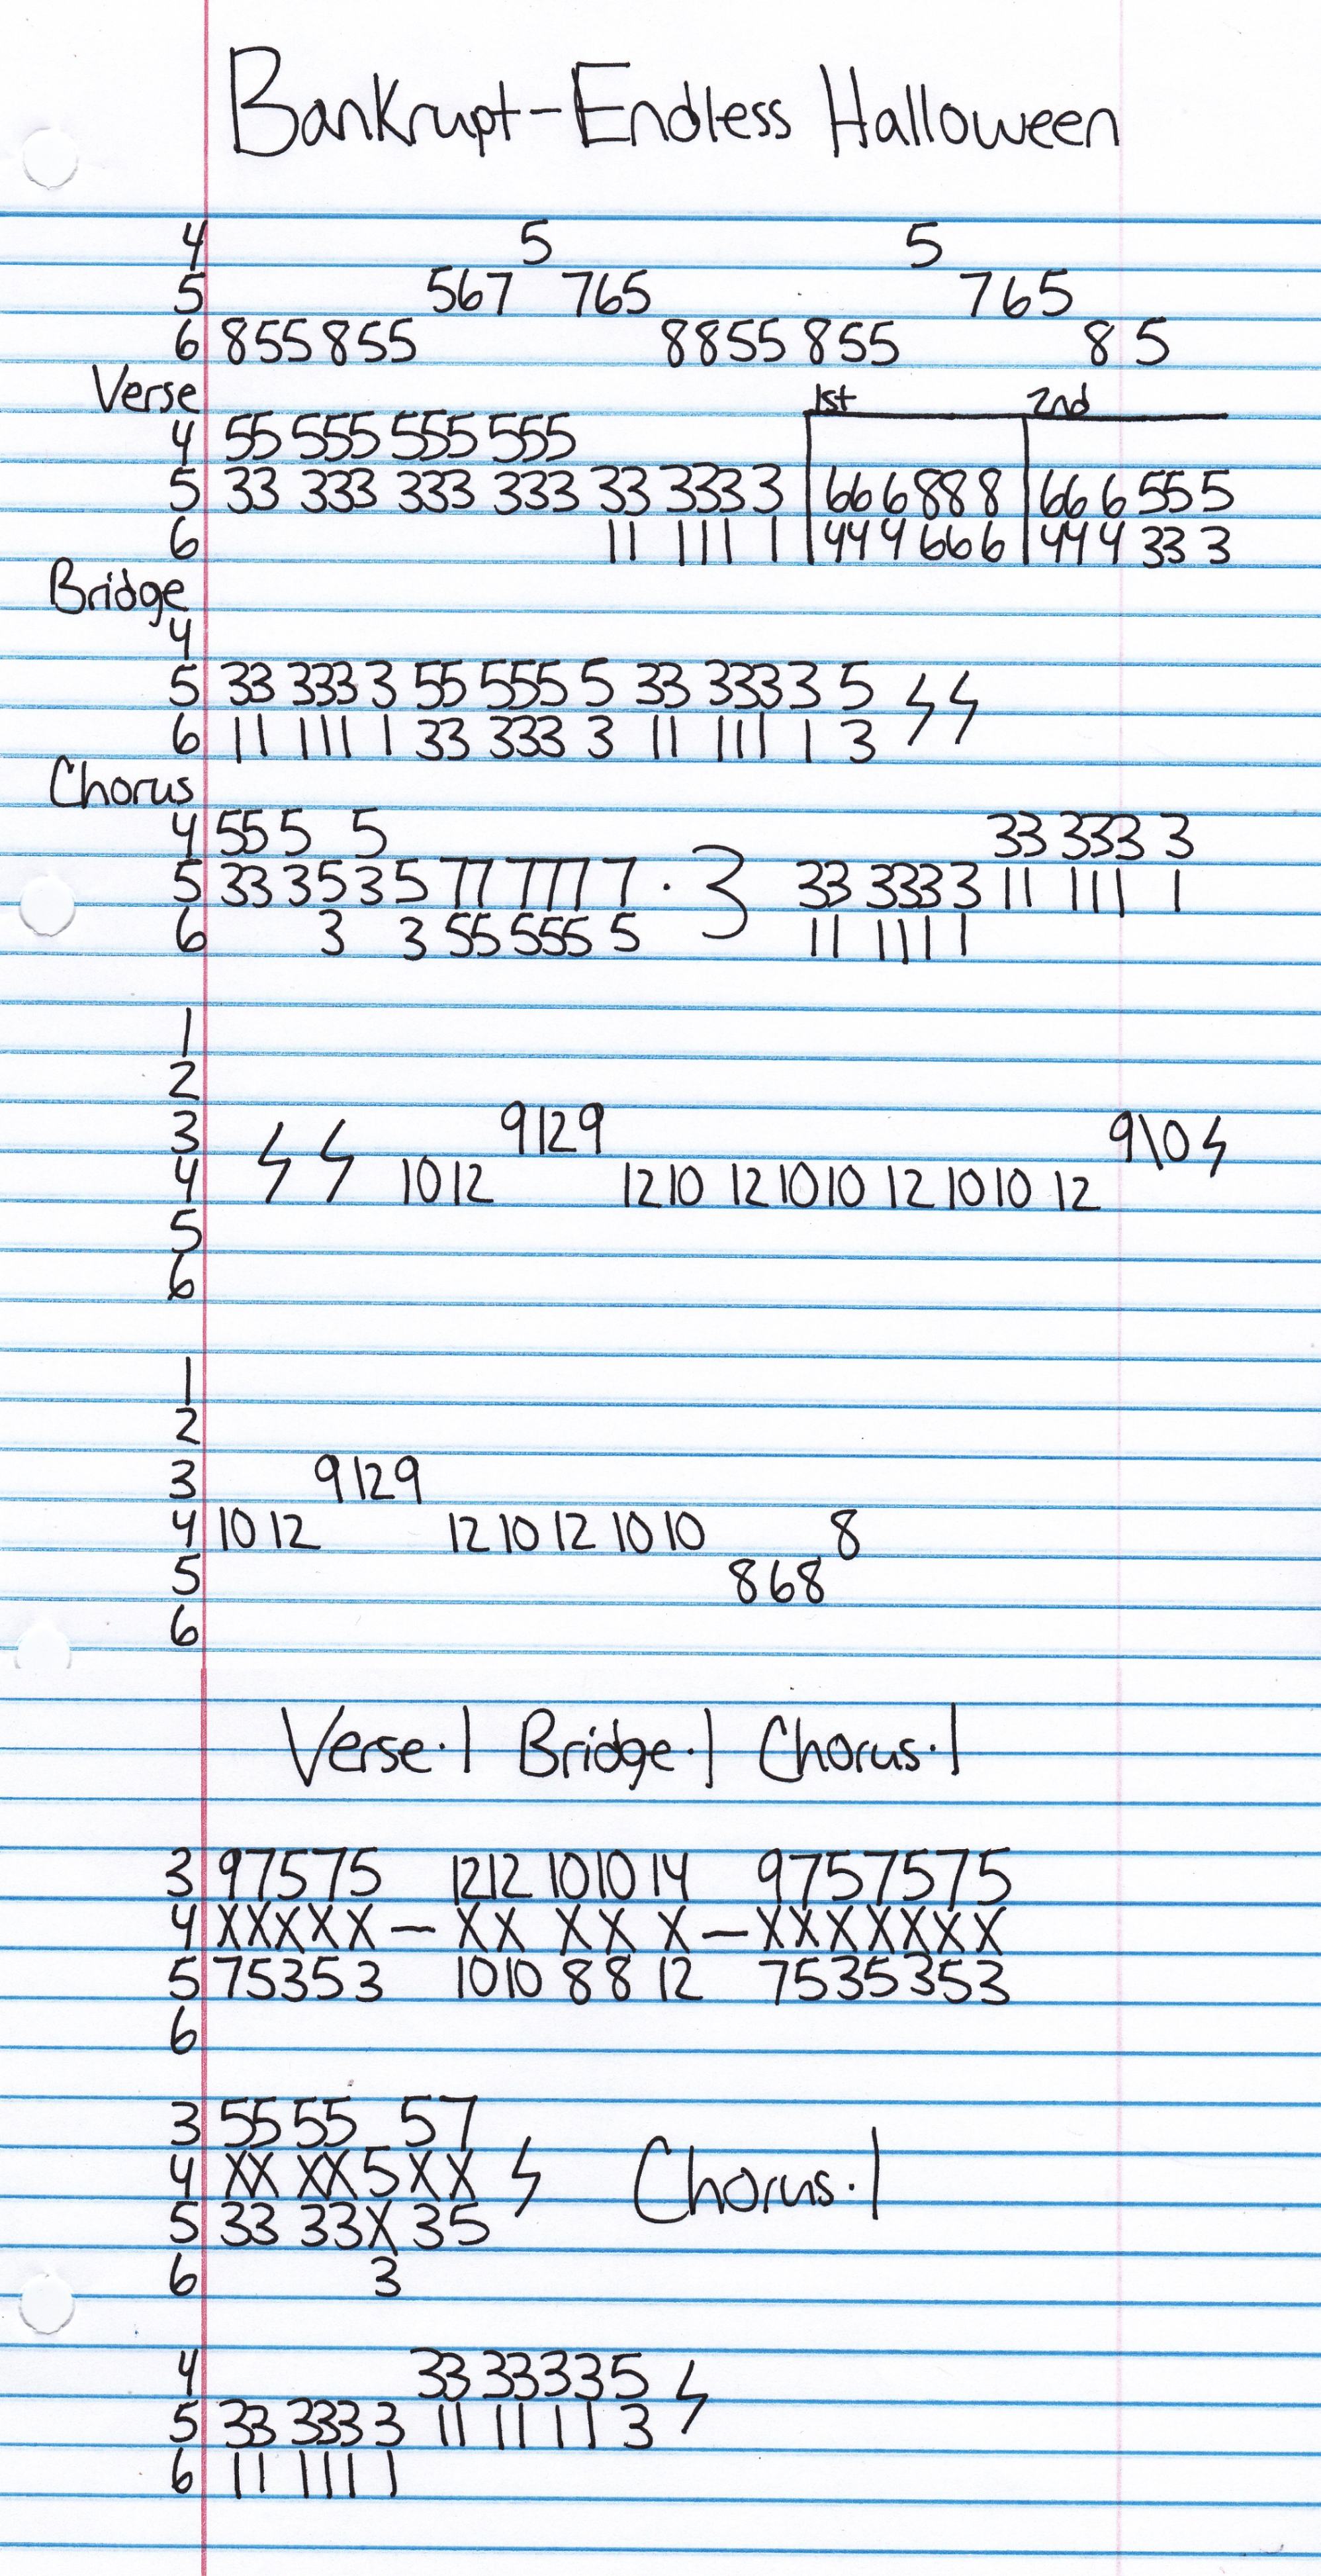 Bankrupt-Endless Halloween
4 5 5
5 567 765 765
6 855855 8855 855 8 5
Verse 1st 2nd
4 55 555 555 555
5 33 333 333 333 33 333 3 666888 666555
6 11 111 1 444666 444333
Bridge
4
5 33 333 3 55 555 5 33 333 3 5
6 11 111 1 33 333 3 11 111 1 3
Chorus
4 55 5 5 33 333 3
5 33 35 35 77 777 7 · 3 33 333 3 11 111 1
6 3 3 55 555 5 11 111 1
1
2
3 9 12 9 9\10
4 10 12 12 10 12 10 10 12 10 10 12
5
6
1
2
3 9 12 9
4 10 12 12 10 12 10 10 8
5 868
6
Verse·1 Bridge·1 Chorus·1
3 97575 12 12 10 10 14 9757575
4 XXXXX – XX XX X – XXXXXXX
5 75353 10 10 8 8 12 7535353
6
3 55 55 57
4 XX XX5XX Chorus·1
5 33 33X35
6 3
4 33 33335
5 33 333 3 11 11 11 3
6 11 111 1